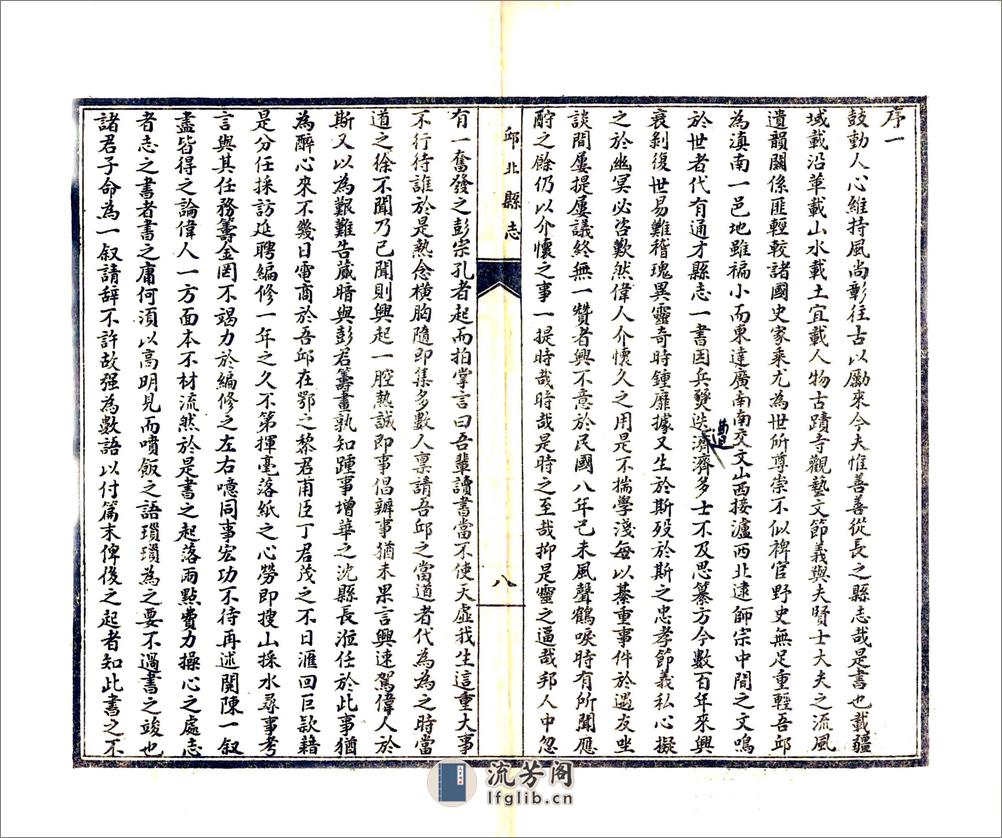 序一
鼓動人心維持風尚彰往古以勵來今夫惟善善從長之縣志哉是書也載疆
域載沿革載山水載土宜載人物古蹟寺觀藝文節義與夫賢士大夫之流風
遺韻關係匪輕較諸國史家乘尤為世所尊崇不似稗官野史無足重輕吾邱
為滇南一邑地雖褊小而東達廣南南交文山西接瀘西北逮師宗中間之文鳴
於世者代有通才縣志一書因兵燹迭遭濟濟多士不及思纂方今數百年來興
衰剝復世易難稽瑰異靈奇時鍾靡據又生於斯歿於斯之忠孝節義私心擬
之於幽冥必咨歎然偉人介懷久之用是不揣學淺每以綦重事件於遇友坐
談間屢提屢議終無一贊者興不意於民國八年己未風聲鶴唳時有所聞應
酧之餘仍以介懷之事一提時哉時哉是時之至哉抑是靈之逼哉邦人中忽
邱北縣志
八
有一奮發之彭宗孔者起而拍掌言曰吾輩讀書當不使天虛我生這重大事
不行待誰於是熱念橫胸隨即集多數人稟請吾邱之當道者代為為之時當
道之徐不聞乃已聞則興起一腔熱誠即事倡辦事猶未果言興速駕偉人於
斯又以為艱難告蕆暗與彭君籌畫孰知踵事增華之沈縣長涖任於此事猶
為醉心來不幾日電商於吾邱在鄂之黎君甫臣丁君茂之不日滙回巨款藉
是分任採訪延聘編修一年之久不第揮毫落紙之心勞即搜山採水尋事考
言與其任務籌金罔不竭力於編修之左右噫同事宏功不待再述関陳一叙
盡皆得之論偉人一方面本不材流然於是書之起落雨點費力操心之處志
者志之書者書之庸何須以高明見而噴飯之語瑣瑣為之要不過書之竣也
諸君子命為一叙請辞不許故强為數語以付篇末俾後之起者知此書之不
流芳阁
lfglib.cn